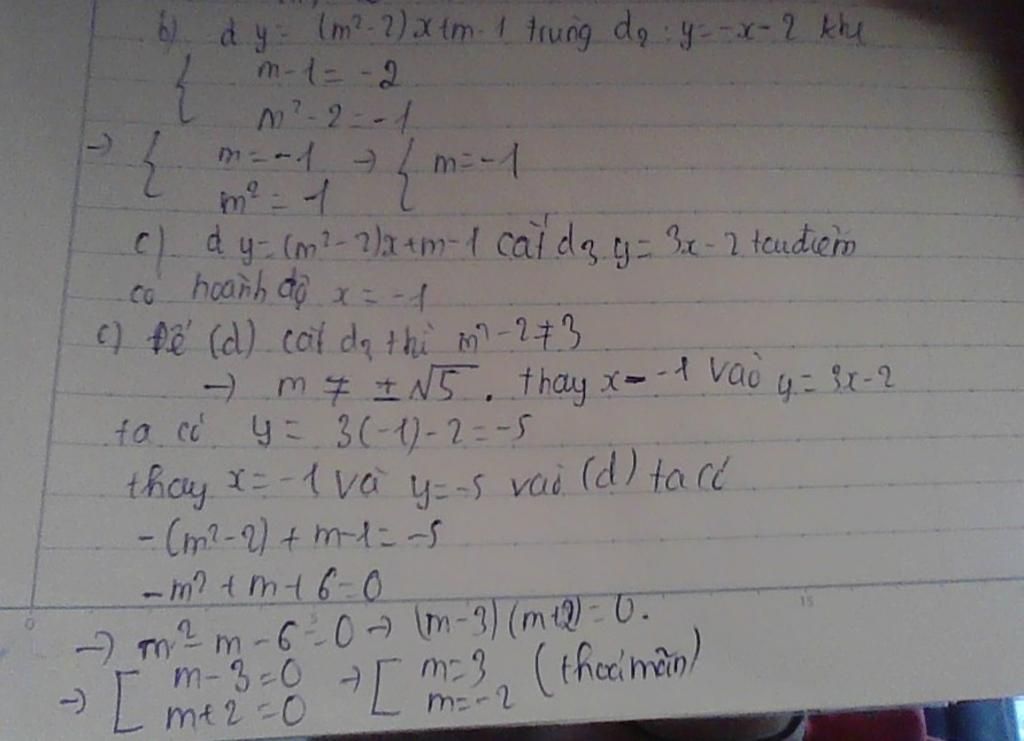 b) d y = (m² - 2)x + m - 1 trùng d₂ : y = -x - 2 khi
{ m - 1 = -2
m² - 2 = -1
→ { m = -1 → { m = -1
m² = -1
c) d y = (m² - 2)x + m - 1 cắt d3 y = 3x - 2 tại điểm
có hoành độ x = -1
c) Để (d) cắt d₃ thì m² - 2 ≠ 3
→ m ≠ ±√5 . thay x = -1 vào y = 3x - 2
ta có y = 3(-1) - 2 = -5
thay x = -1 và y = -5 vào (d) ta có
-(m² - 2) + m - 1 = -5
-m² + m + 6 = 0
→ m² - m - 6 = 0 → (m - 3)(m + 2) = 0.
→ [ m - 3 = 0 → [ m = 3 (thoả mãn)
m + 2 = 0 m = -2
0 5 15